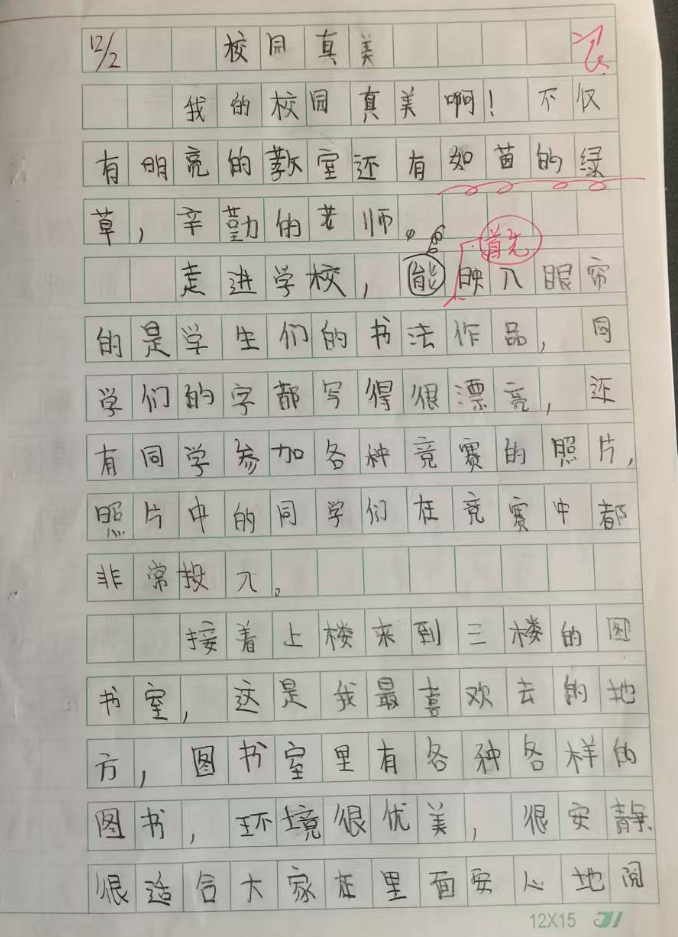 12/2 校园真美
我的校园真美啊！不仅
有明亮的教室还有如茵的绿
草，辛勤的老师。
首先
走进学校，能映入眼帘
的是学生们的书法作品，同
学们的字都写得很漂亮，还
有同学参加各种竞赛的照片，
照片中的同学们在竞赛中都
非常投入。
接着上楼来到三楼的图
书室，这是我最喜欢去的地
方，图书室里有各种各样的
图书，环境很优美，很安静
很适合大家在里面安心地阅
12X15